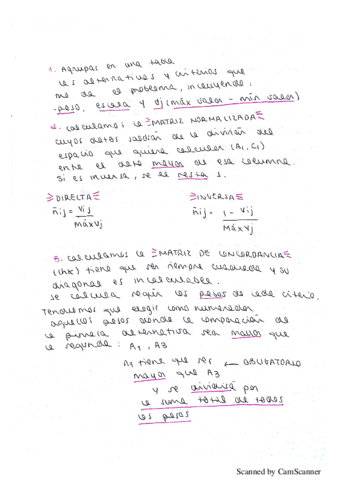 1. Agrupas en una tabla
las alternativas y criterios que
me da el problema, incluyendo:
-peso, escala y dj (máx valor - mín valor)
2. Calculamos la MATRIZ NORMALIZADA
cuyos datos saldrán de la división del
espacio que quiera calcular (A1, C1)
entre el dato mayor de esa columna.
Si es inversa, se le resta 1.
DIRECTA INVERSA
ñij = Vij / MáxVj ñij = 1 - Vij / MáxVj
3. Calculamos la MATRIZ DE CONCORDANCIA
(chk) tiene que ser siempre cuadrada y su
diagonal es incalculable.
Se calcula según los pesos de cada criterio.
Tendremos que elegir como numerador
aquellos pesos donde la comparación de
la primera alternativa sea mayor que
la segunda: A1, A3
A1 tiene que ser ← OBLIGATORIO
mayor que A3
y se dividirá por
la suma total de todos
los pesos
Scanned by CamScanner